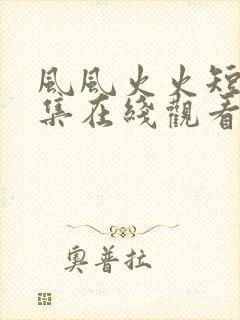 風風火火短
集在綫觀看
奧普拉